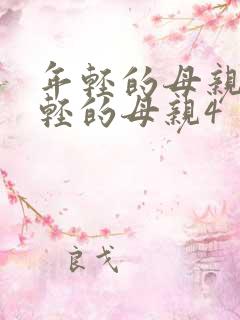 年輕的母親
輕的母親4
良戈